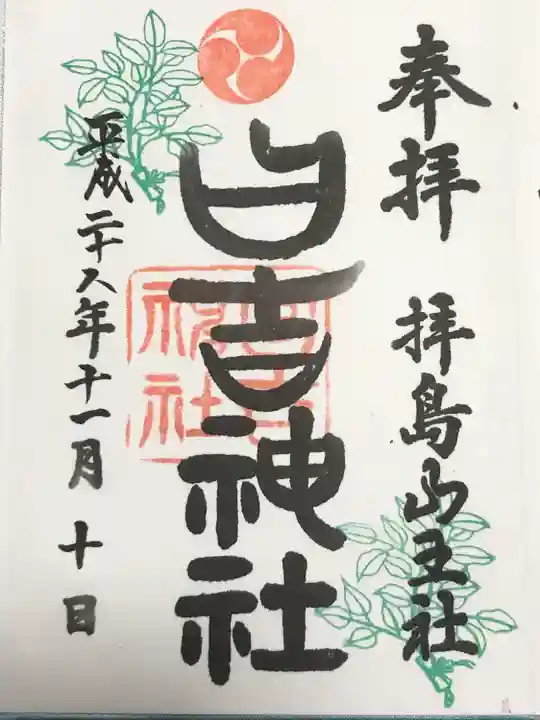 奉拝 拝島山王社
日吉神社
平成二十八年十一月十日